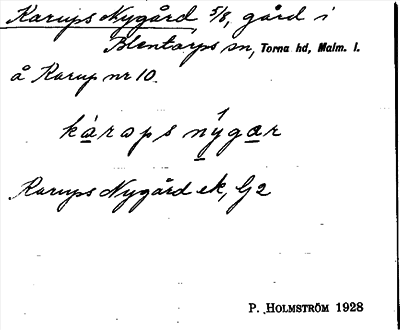 Karups Nygård 5/8, gård i
Blentarps sn, Torna hd, Malm. l.
å Karup nr 10.
károps nýgar
Karups Nygård ek, G2
P. HOLMSTRÖM 1928